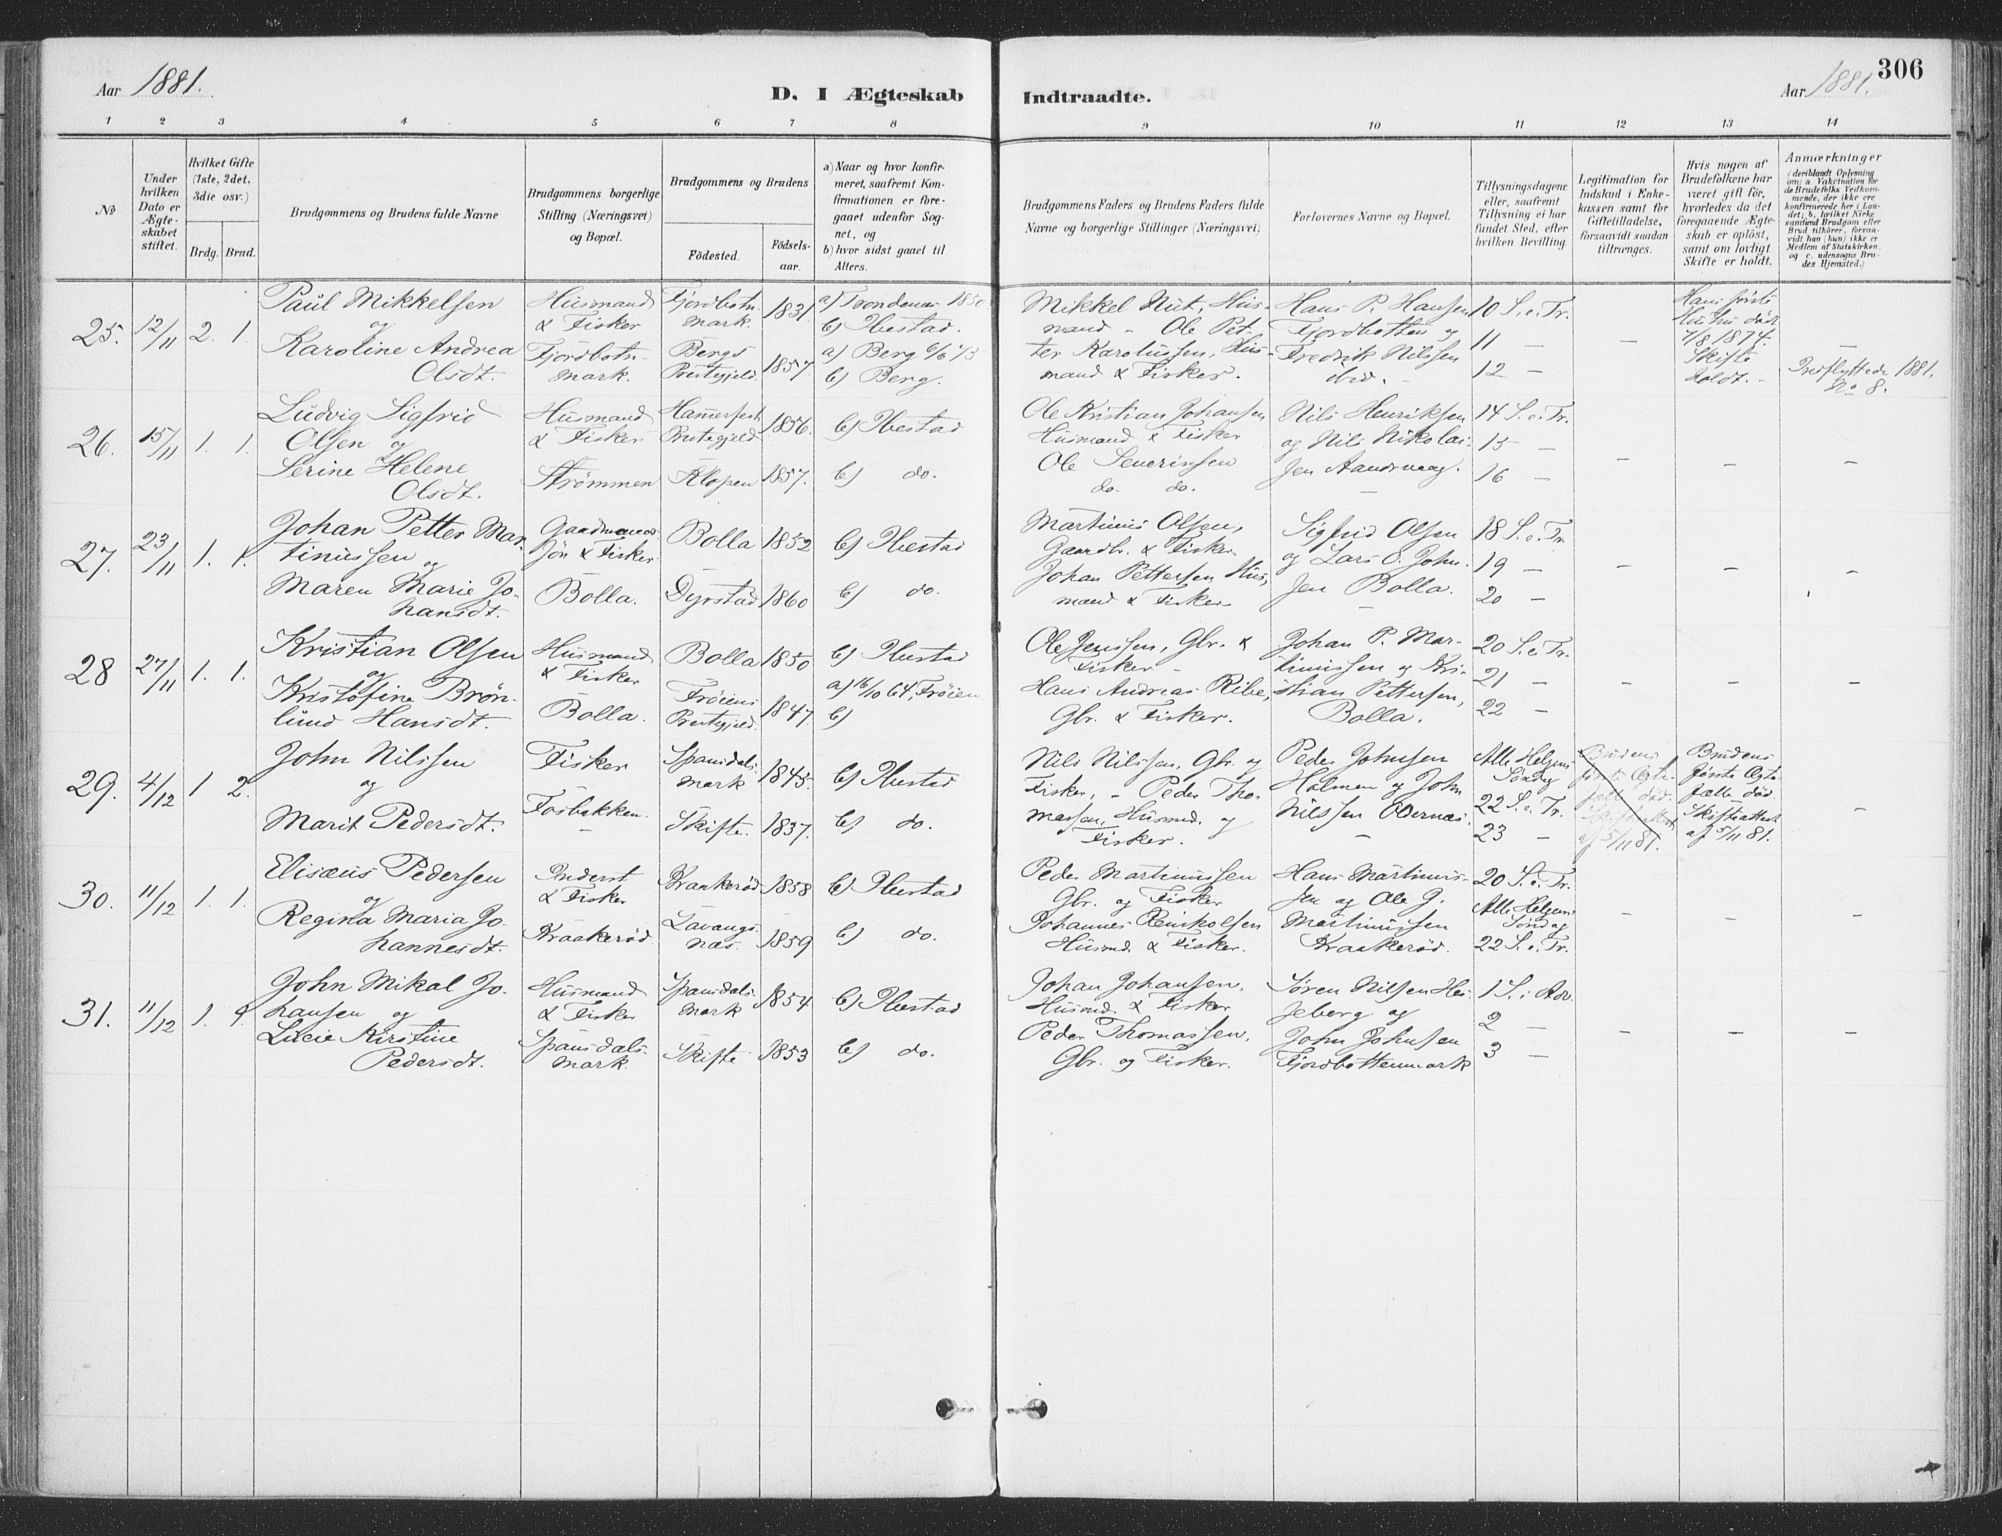 Aar 1881.
D. I Ægteskab
Indtraadte.
Aar 1881.
306
1 2 3 4 5 6 7 8 9 10 11 12 13 14
No
Under hvilken Dato er Ægteskabet stiftet.
Hvilket Gifte (1ste, 2det, 3die osv.)
Brdg. Brud.
Brudgommens og Brudens fulde Navne
Brudgommens borgerlige Stilling (Næringsvei) og Bopæl.
Brudgommens og Brudens
Födested.
Födselsaar.
a) Naar og hvor konfirmeret, saafremt Konfirmationen er foregaaet udenfor Sognet, og
b) hvor sidst gaaet til Alters.
Brudgommens Faders og Brudens Faders fulde Navne og borgerlige Stillinger (Næringsvei)
Forlovernes Navne og Bopæl.
Tillysningsdagene eller, saafremt Tillysning ei har fundet Sted, efter hvilken Bevilling.
Legitimation for Indskud i Enkekassen samt for Giftetilladelse, forsaavidt saadan tiltrænges.
Hvis nogen af Brudefolkene har været gift för, hvorledes da det foregaaende Ægteskab er oplöst, samt om lovligt Skifte er holdt.
Anmærkninger
(deriblandt Oplysning om: a. Vakcination for de Brudefolks Vedkommende, der ikke ere konfirmerede her i Landet; b. hvilket Kirkesamfund Brudgom eller Brud tilhörer, forsaavidt han (hun) ikke er Medlem af Statskirken, og c. udensogns Brudes Hjemsted.)
25. 12/11 2. 1.
Paul Mikkelsen
og
Karoline Andrea
Olsdt.
Husmand
& Fisker
Fjordbotn-
mark.
Fjordbotn-
mark.
Bergs
Prestegjeld.
1831.
1857.
a) Trondenes 1850
b) Ibestad.
a) Berg 6/6 73
b) Berg.
Mikkel Nut, Hus-
mand - Ole Pet-
ter Karolussen, Hus-
mand & Fisker.
Hans P. Hansen
Fjordbotten og
Fredrik Nilssen
ibid.
10 S. e. Tr.
11 —
12 —
—
Hans første
Hustru død
4/8 1874.
Skifte
holdt.
Indflyttede 1881.
No 8.
26. 15/11 1. 1.
Ludvig Sigfrid
Olsen og
Serine Helene
Olsdt.
Husmand
& Fisker
Strømmen
Hamerfest
Prestegjeld
Klopen
1856.
1857.
b) Ibestad
b) do.
Ole Kristian Johansen
Husmand & Fisker
Ole Severinsen
do. do.
Nils Henriksen
og Nils Nikolai-
sen Aandervaag.
14 S. e. Tr.
15 —
16 —
— — —
27. 23/11 1. 1.
Johan Petter Mar-
tinussen og
Maren Marie Jo-
hansdt.
Gaardmands
søn & Fisker
Bolla.
Bolla
Dyrstad
1852
1860
b) Ibestad
b) do.
Martinus Olsen,
Gaardbr. & Fisker
Johan Pettersen Hus-
mand & Fisker
Sigfrid Olsen
og Lars O. John-
sen Bolla.
18 S. e. Tr.
19 —
20 —
— — —
28 27/11 1. 1.
Kristian Olsen
og
Kristofine Brøn-
lund Hansdt.
Husmand
& Fisker
Bolla.
Bolla
Frøiens
Prestegjeld.
1850
1847
b) Ibestad
a) 16/10 64, Frøien
b)
Ole Jenssen, Gbr. &
Fisker -
Hans Andreas Ribe,
Gbr. & Fisker.
Johan P. Mar-
tinussen og Kri-
stian Pettersen,
Bolla.
20 S. e. Tr.
21 —
22 —
— — —
29. 4/12 1 2.
John Nilssen
og
Marit Pedersdt.
Fisker
Fosbakken.
Spansdals-
mark
Skifte.
1845.
1837.
b) Ibestad
b) do.
Nils Nilssen, Gbr. og
Fisker, - Peder Tho-
massen, Husmd. og
Fisker.
Peder Johnsen
Holmen og John
Nilssen
Alle Helgens
Søndag
22 S. e. Tr.
23 —
Brudens
første Ægte-
fælle død.
Skifteattest
af 5/11 81.
Brudens
første Ægte-
fælle død.
Skifteattest
af 5/11 81.
—
30. 11/12 1. 1.
Elisæus Pedersen
og
Regina Maria Jo-
hannesdt.
Inderst
& Fisker
Kraakerød
Kraakerød
Lavangs-
næs.
1858
1859
b) Ibestad
b) do.
Peder Martinussen
Gbr. og Fisker
Johannes Reinholsen
Husmd. & Fisker.
Hans Martinus-
sen og Ole J.
Martinussen
Kraakerød.
20 S. e. Tr.
Alle Helgens
Søndag
22 S. e. Tr.
— — —
31. 11/12 1. 1.
John Mikal Jo-
hansen og
Lucie Kirstine
Pedersdt.
Husmand
& Fisker
Spansdals-
mark.
Spansdals-
mark
Skifte
1854
1853
b) Ibestad
b) do.
Johan Johansen,
Husmd. & Fisker
Peder Thomassen,
Gbr. og Fisker.
Søren Nilsen Hes-
jeberg og
John Johnsen
Fjordbottenmark
1 S. i Adv.
2 —
3 —
— — —